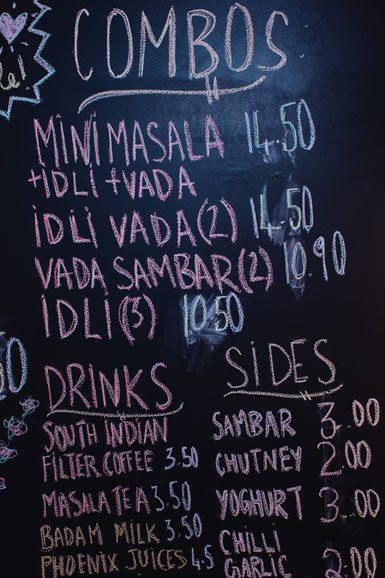 COMBOS
MINI MASALA 14.50
+IDLI +VADA
IDLI VADA(2) 14.50
VADA SAMBAR(2) 10.90
IDLI(3) 10.50
DRINKS
SOUTH INDIAN
FILTER COFFEE 3.50
MASALA TEA 3.50
BADAM MILK 3.50
PHOENIX JUICES 4.5
SIDES
SAMBAR 3.00
CHUTNEY 2.00
YOGHURT 3.00
CHILLI
GARLIC 2.00